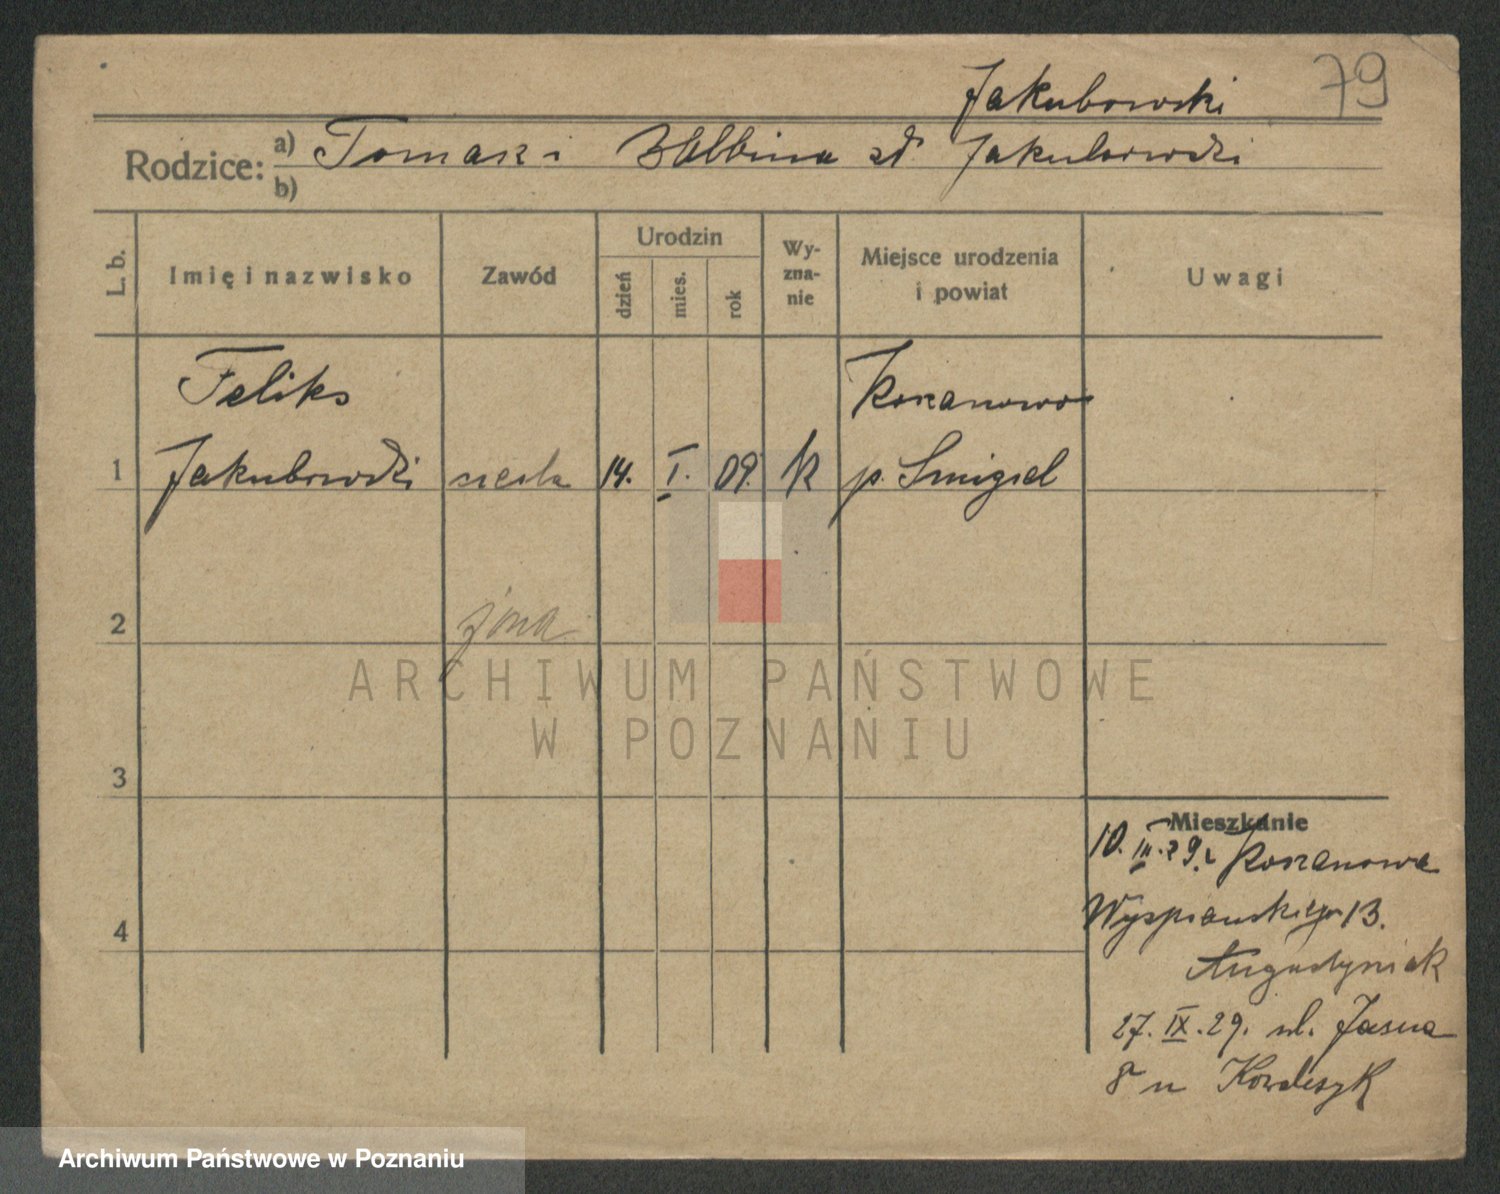 79
Jakubowski
Rodzice: a) Tomasz i Balbina zd. Jakubowski
b)
L. b.
Imię i nazwisko
Zawód
Urodzin
dzień
mies.
rok
Wy-
zna-
nie
Miejsce urodzenia
i powiat
Uwagi
Feliks
Kokanowo
1 Jakubowski cieśla 14. I. 09. k p. Smigiel
2 żona
3
4
Mieszkanie
10. III. 29. z
Wyspiańskiego 13.
Augustyniak
27. IX. 29. ul. Jasna
8 u Kowalczyk
ARCHIWUM PAŃSTWOWE
W POZNANIU
Archiwum Państwowe w Poznaniu